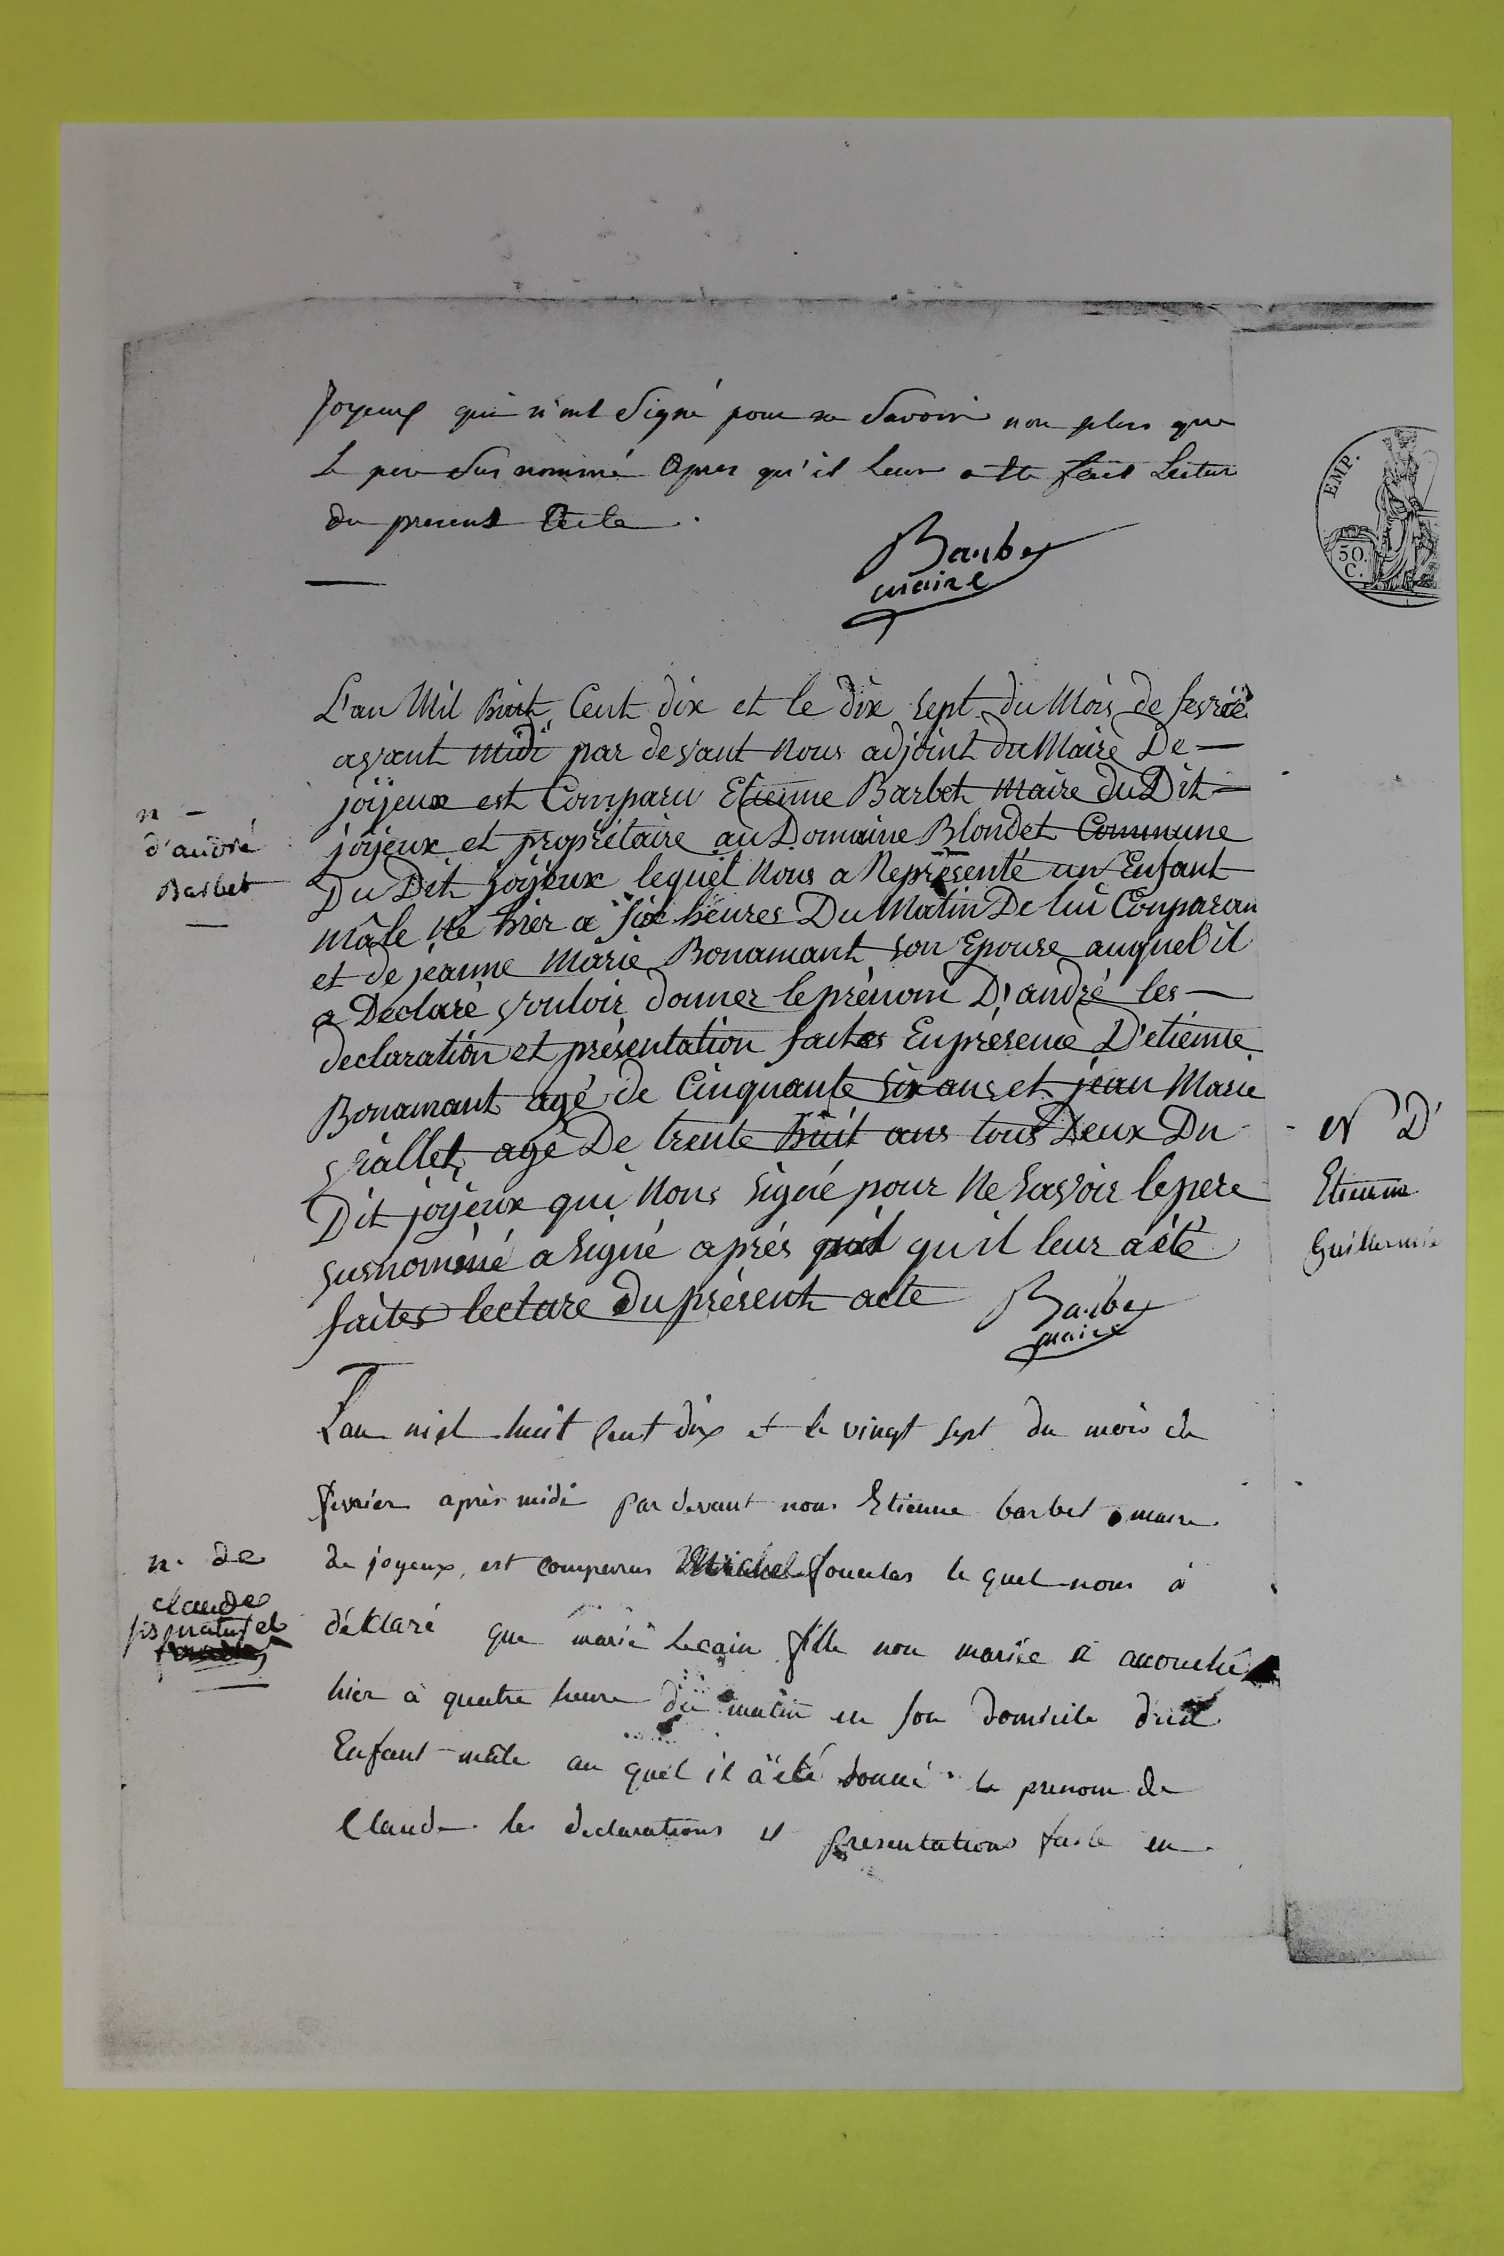 Joyeux qui n'ont Signé pour ne Savoir non plus que
le pere Sus nommé Apres qu'il leur a été fait Lecture
du present Acte.
Barbet
maire
n -
d'andré
Barbet
L'an Mil huit Cent dix et le dix sept du Mois de fevrié
avant midi par devant Nous adjoint du Maire De
joijeux est Comparu Etienne Barbet maire du Dit
joijeux et propriétaire au Domaine Blondet Commune
Du Dit joijeux lequel Nous a Représenté un Enfant
mâle Né hier a six heures Du Matin De lui Conparan
et de jeanne Marie Bonamant son Epouse auquel il
a Declaré vouloir donner le prénom D'andré les
declaration et présentation faites En présence D'etienne
Bonamant agé de Cinquante six ans et jean Marie
vrallet agé De trente huit ans tous Deux Du
Dit joijeux qui Nons signé pour Ne savoir le pere
susnoméné a signé aprés qu'il leur a été
faites lecture Du présent acte
Barbet
maire
n. de
claude
fis naturel
L'an mil huit Cent dix et le vingt sept du mois de
fevrier après midi par devant nous Etienne barbet maire
de joyeux, est comparrus Michel le quel nous à
déclaré que marie Lecain fille non mariée à accouché
hier à quatre heure du matin en son domicile d'un
Enfant mâle au quel il à été donné le prenom de
Claude les declarations et presentations faite en
EMP.
50.
C.
N D'
Etienne